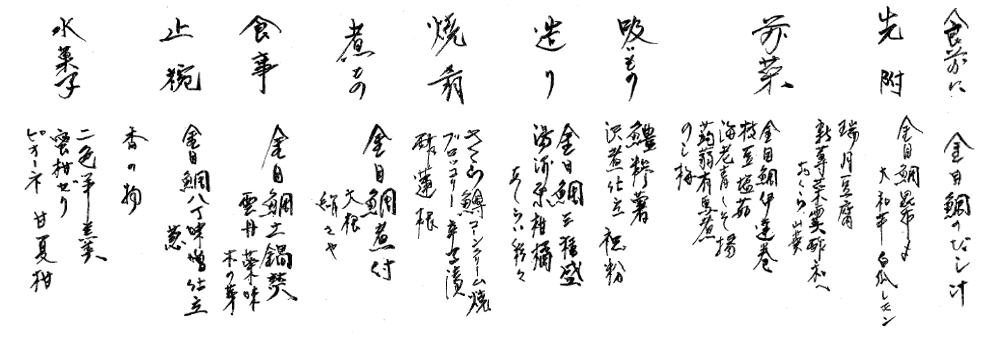 食前に
金目鯛のびしし汁
先附
金目鯛昆布〆
大和芋 白瓜 レモン
瑞月豆腐
新蓴菜 霙酢和へ
おくら 山葵
前菜
金目鯛伊達巻
枝豆塩茹
海老青しそ揚
蒟蒻有馬煮
のし梅
吸いもの
鱧糝薯
沢煮仕立 梶粉
造り
金目鯛三種盛
湯河原柑橘
あしらい彩々
焼肴
さくら鱒コーンクリーム焼
ブロッコリー芥子漬
酢蓮根
煮もの
金目鯛煮付
大根
絹さや
食事
金目鯛土鍋焚
雲丹 薬味
木の芽
止椀
金目鯛八丁味噌仕立
葱
香の物
水菓子
二色羊羹
蜜柑ゼリー
ピオーネ 甘夏柑